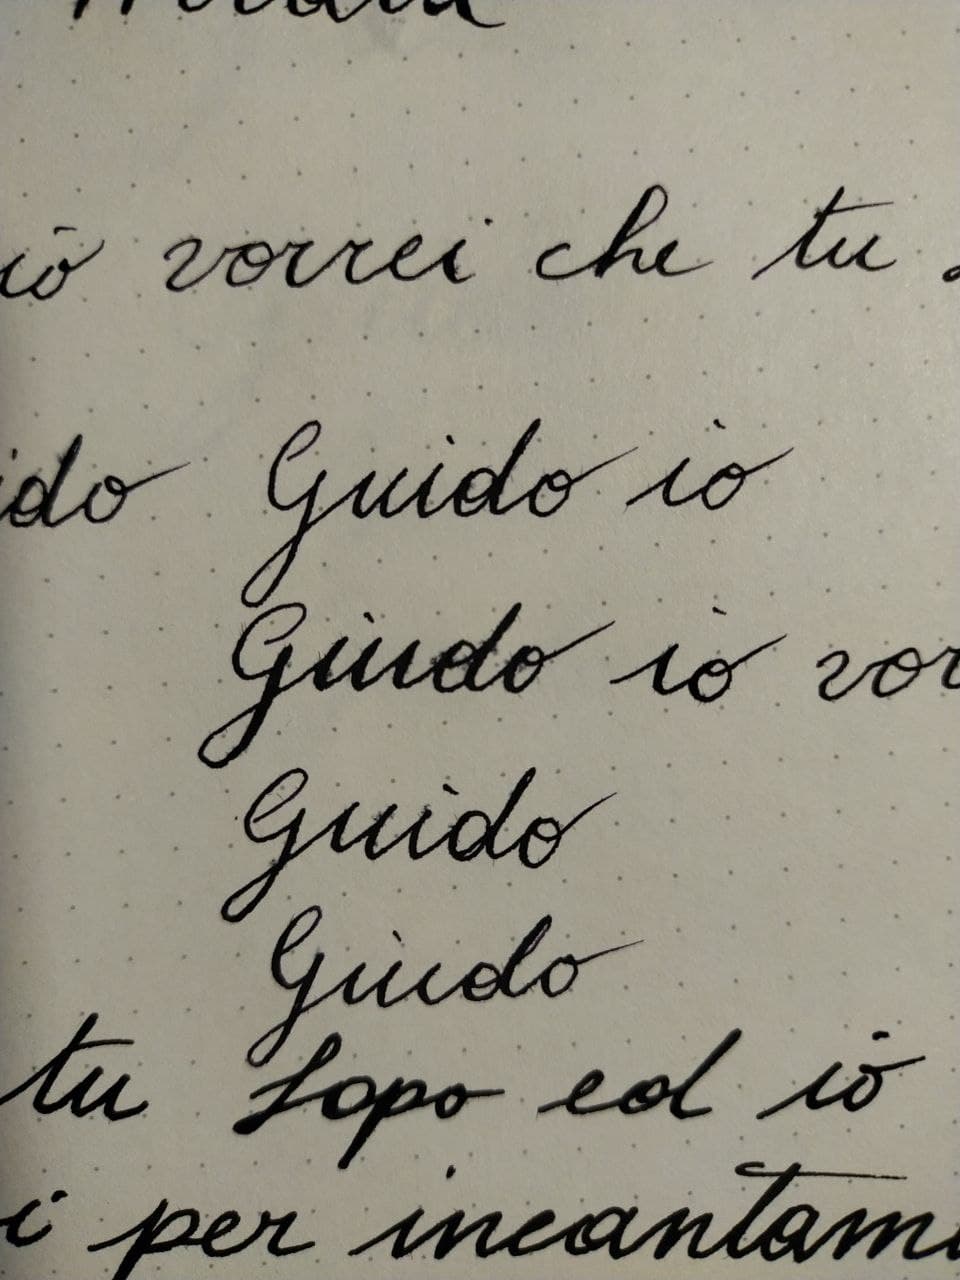 io vorrei che tu
ido Guido io
Guido io vor
Guido
Guido
tu Lapo ed io
i per incantam